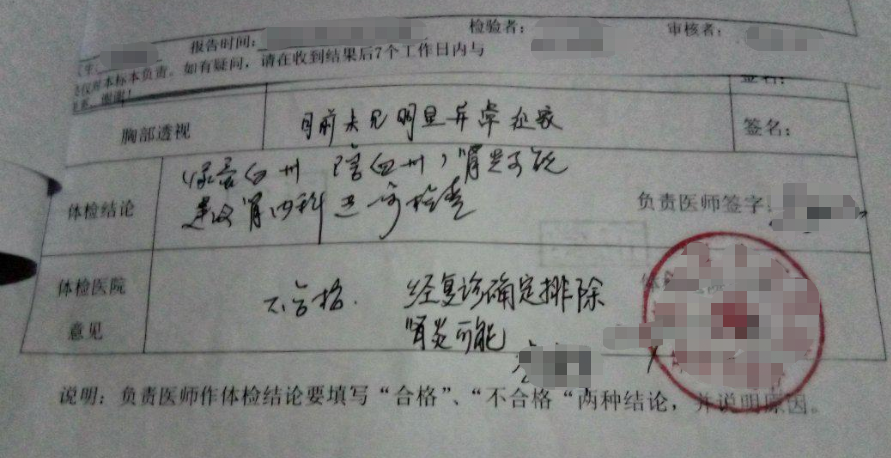 报告时间: 检验者: 审核者:
仅对本标本负责。如有疑问，请在收到结果后7个工作日内与
谢谢!
签名:
胸部透视 目前未见明显异常征象 签名:
体检结论 尿蛋白卅 隐血卅,肾炎可能
建议肾内科进一步检查 负责医师签字:
体检医院 不合格. 经复诊确定排除
意见 肾炎可能
说明: 负责医师作体检结论要填写“合格”、“不合格“两种结论, 并说明原因。